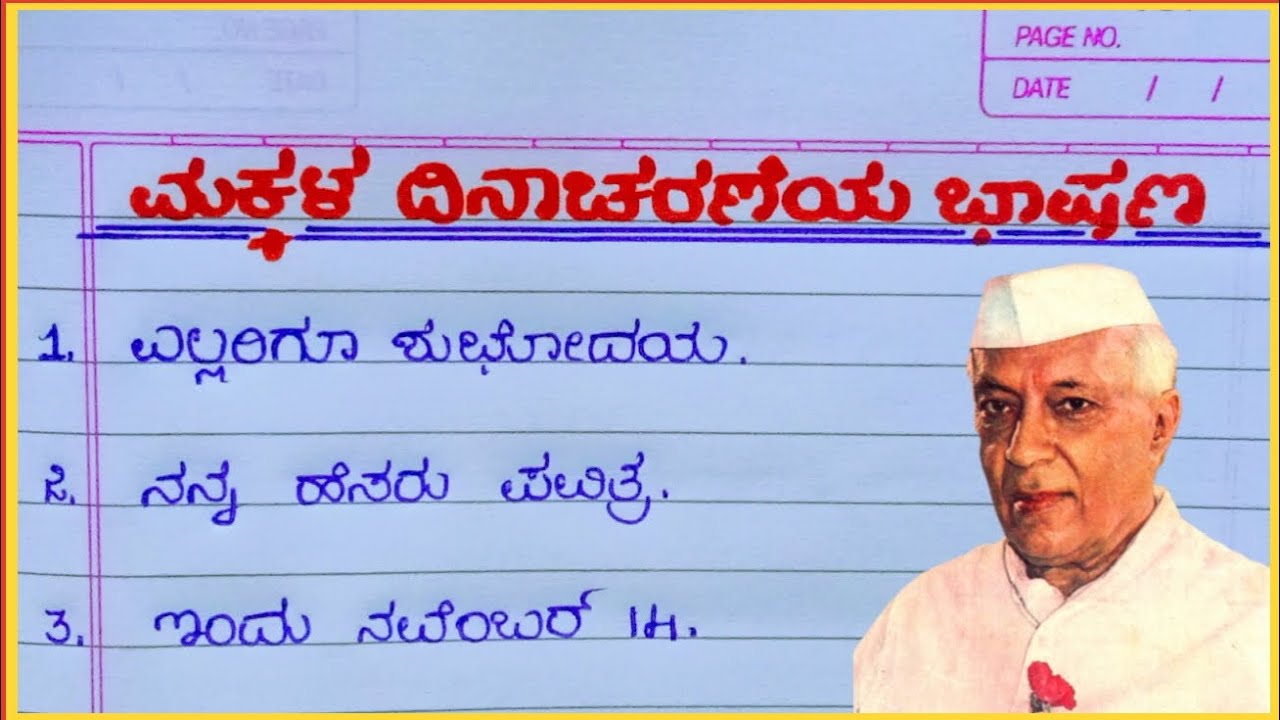 PAGE NO.
DATE / /
ಮಕ್ಕಳ ದಿನಾಚರಣೆಯ ಭಾಷಣ
1. ಎಲ್ಲರಿಗೂ ಶುಭೋದಯ.
2. ನನ್ನ ಹೆಸರು ಪವಿತ್ರ.
3. ಇಂದು ನವೆಂಬರ್ 14.